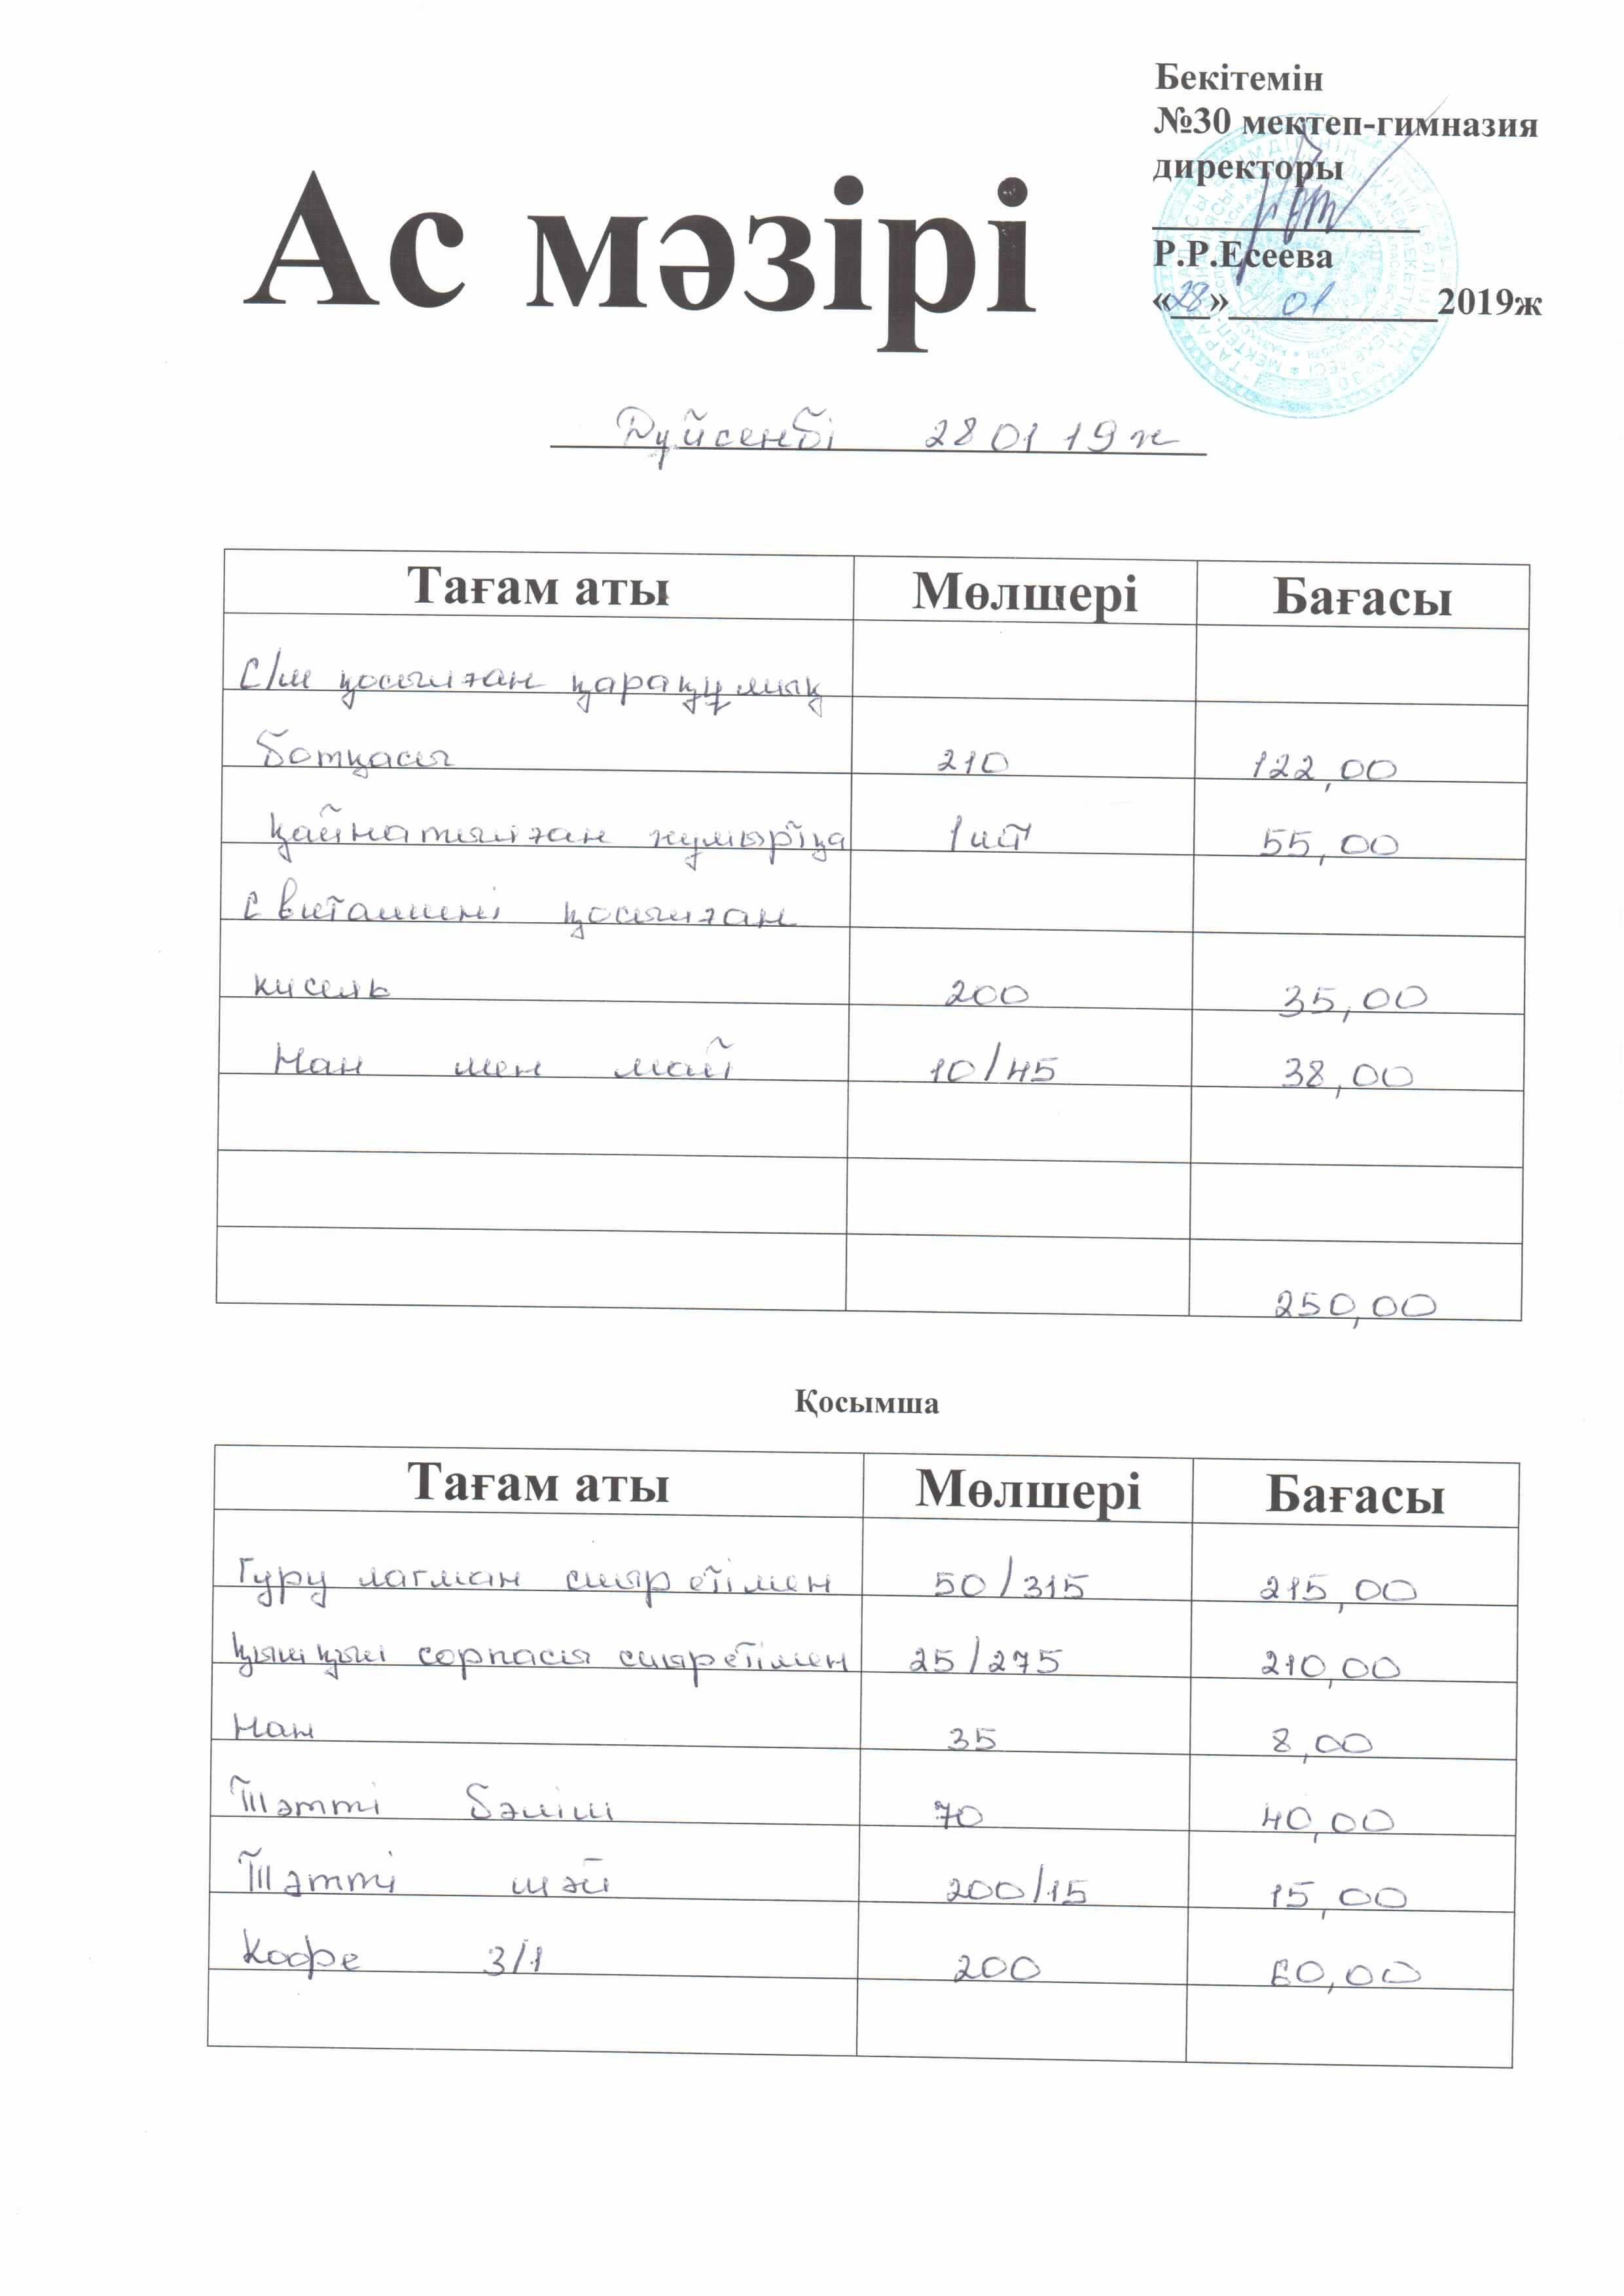 Бекітемін
№30 мектеп-гимназия
директоры
Р.Р.Есеева
«28» 01 2019ж
Ас мәзірі
Дүйсенбі 28 01 19 ж
Тағам аты Мөлшері Бағасы
С/м қосылған қарақұмық
ботқасы 210 122,00
Қайнатылған жұмыртқа 1шт 55,00
С витамині қосылған
кисель 200 35,00
Нан мен май 10/45 38,00
250,00
Қосымша
Тағам аты Мөлшері Бағасы
Гуру лагман сиыр етімен 50/315 215,00
Қышқыл сорпасы сиыр етімен 25/275 210,00
Нан 35 8,00
Тәтті бәліш 70 40,00
Тәтті шәй 200/15 15,00
Кофе 3/1 200 60,00